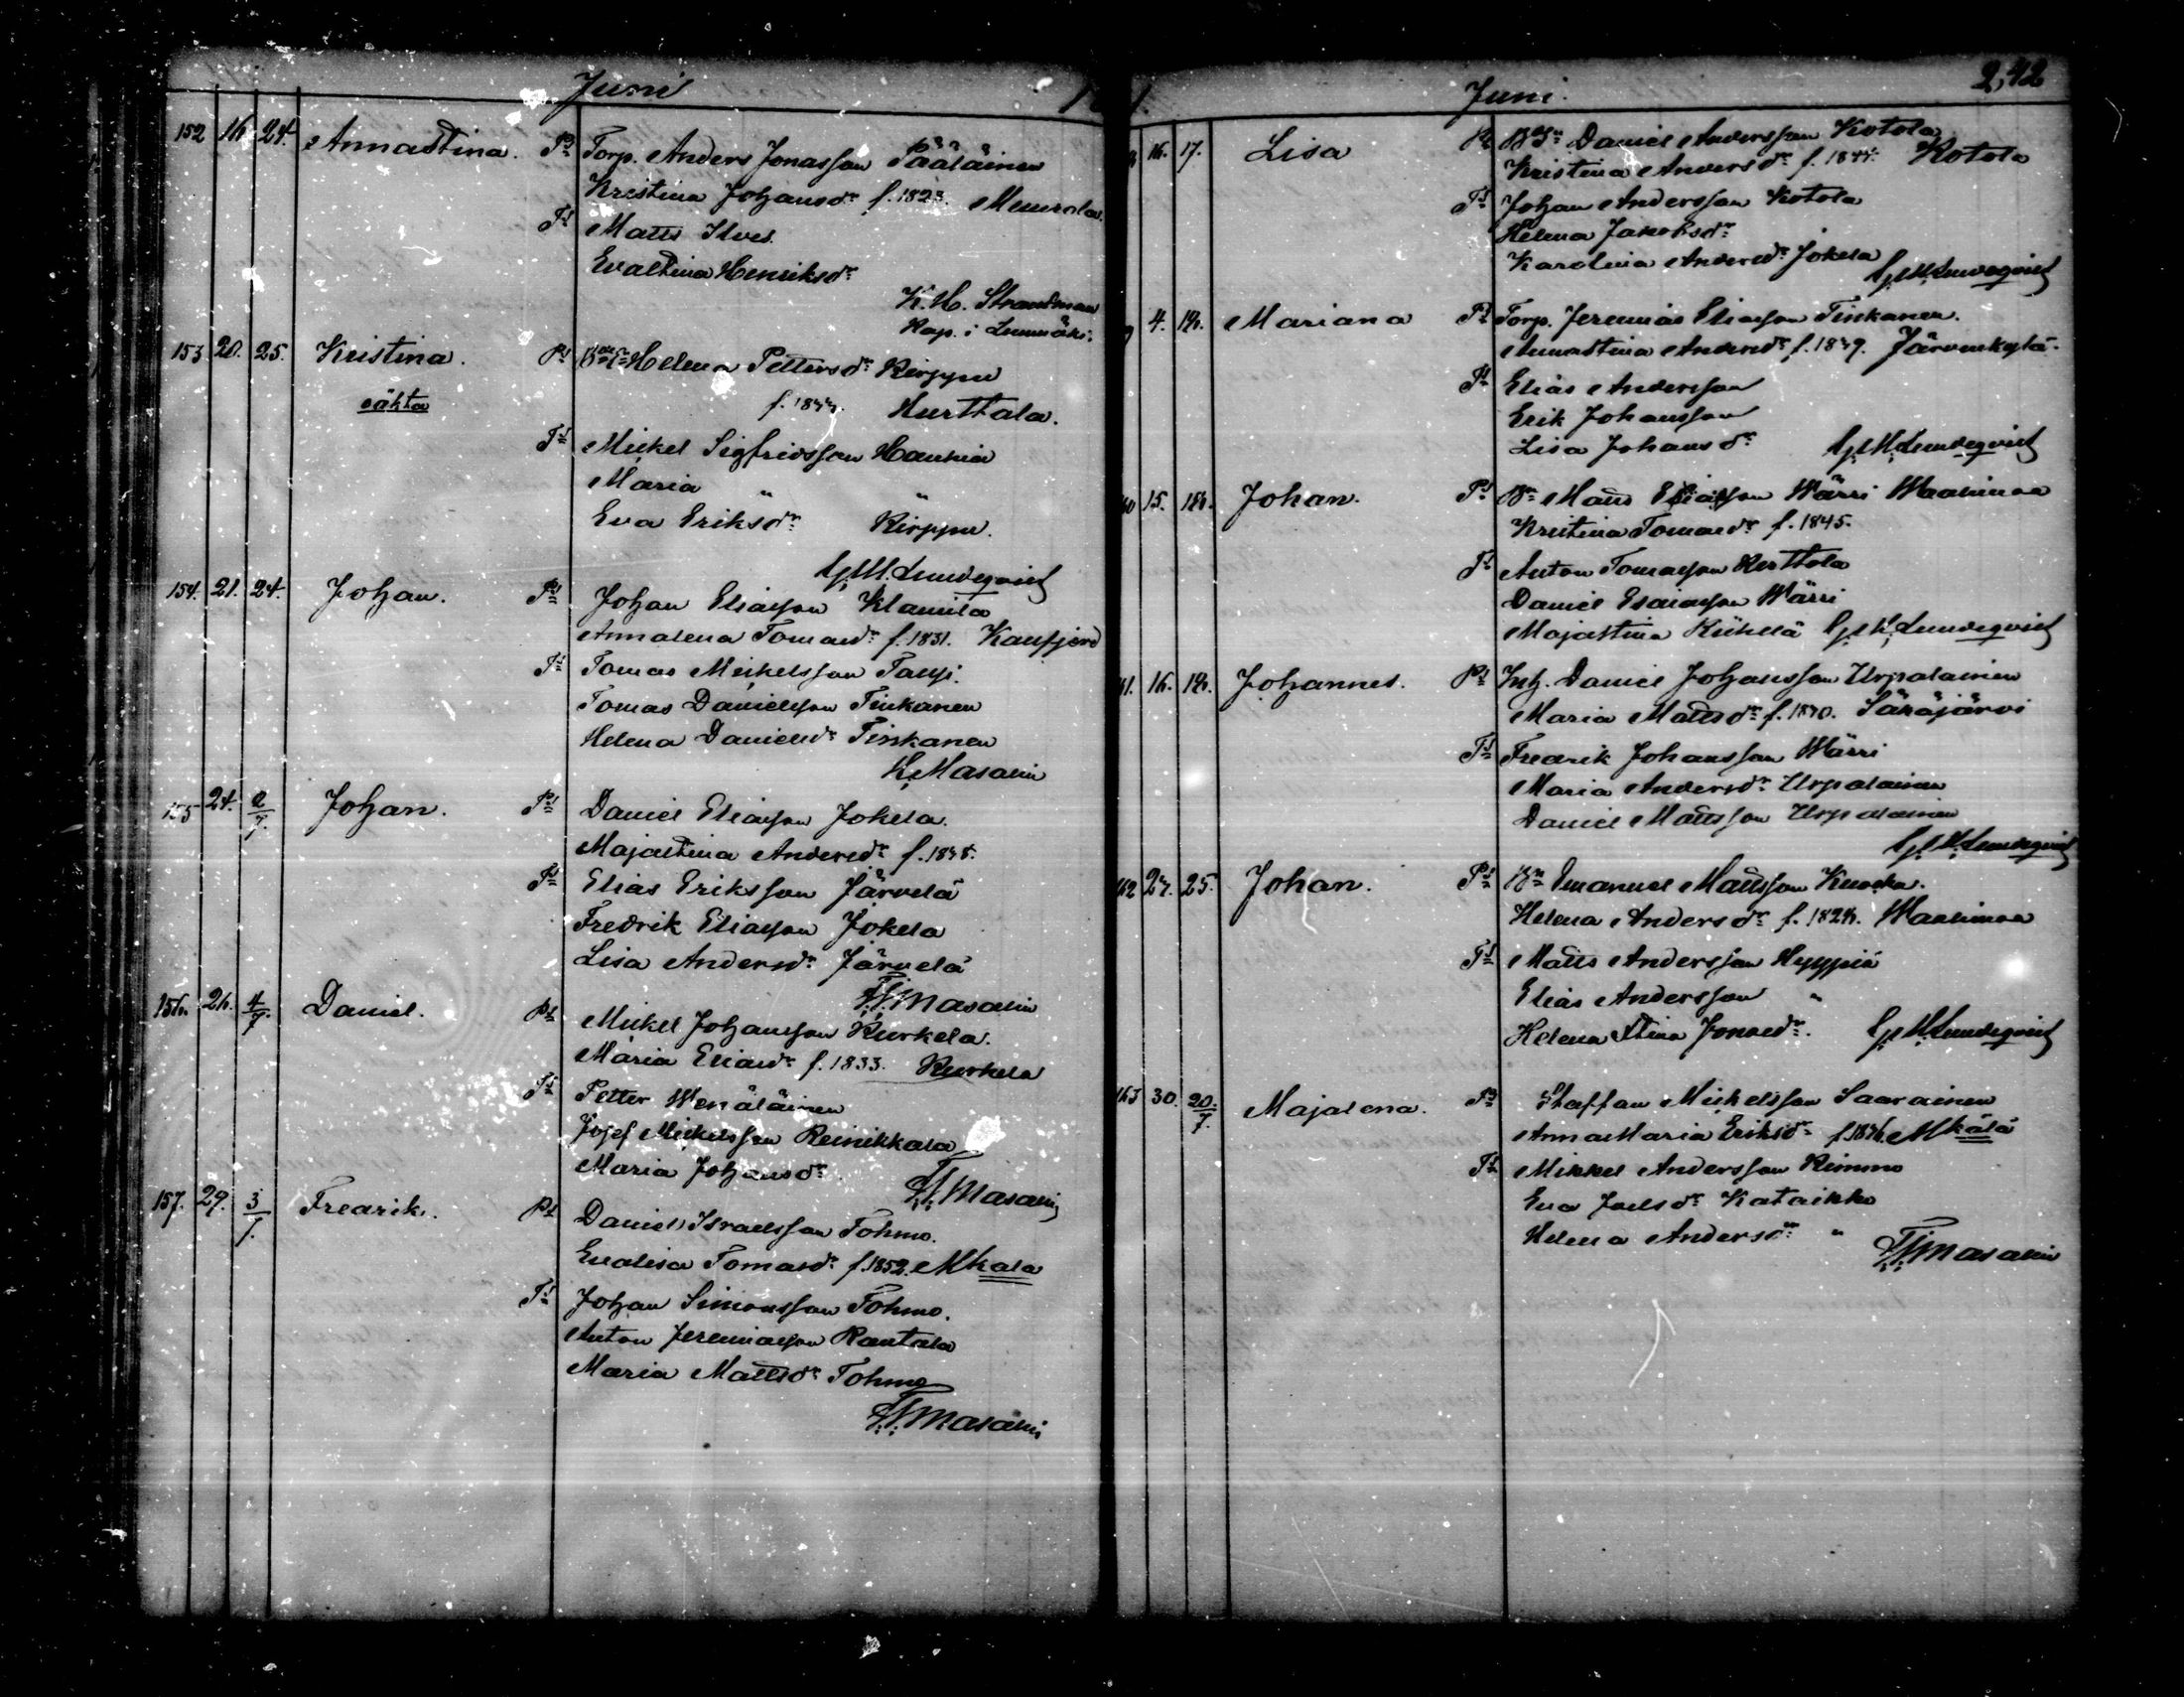 Juni
152 16. 24. Annastina. Fr Torp. Anders Jonasson Pääläinen
Kristina Johansdr f. 1823. Muurola.
Ft Matts Ilves.
Evastina Henriksdr
K. H. Strandman
Kap. i Lummäki.
153 20. 25. Kristina. Fr Helena Pettersdr Kirppu
oäkta f. 1844. Hurttala.
Ft Mickel Sigfridsson Haukia
Maria " "
Eva Eriksdr Kirppu.
G. M. Lundeqvist
154. 21. 24. Johan. Fr Johan Eliasson Klamila
Annalena Tomasdr f. 1831.
Ft Tomas Mickelsson
Tomas Danielsson Tinkanen
Helena Danielsdr Tinkanen
Masalin
155 24. 2/7. Johan. Fr Daniel Eliasson Jokela.
Majastina Andersdr f. 1848.
Ft Elias Eriksson Järvelä
Fredrik Eliasson Jokela
Lisa Andersdr Järvelä
Masalin
156. 26. 4/7. Daniel. Fr Mickel Johansson Kurkela.
Maria Eliasdr f. 1833. Kurkela
Ft Petter Wenäläinen
Josef Mickelsson Reinikkala
Maria Johansdr
Masalin
157. 29. 3/7. Fredrik. Fr Daniel Israelsson Tohmo.
Evalisa Tomasdr f. 1852. Mkala
Ft Johan Simonsson Tohmo.
Anton Jeremiasson Rantala
Maria Mattsdr Tohmo
Masalin
2,42
Juni.
16. 17. Lisa Fr Daniel Andersson Kotola
Kristina Andersdr f. 1844. Kotola
Ft Johan Andersson Kotola
Helena Jakobsdr
Karolina Andersdr Jokela
G. M. Lundeqvist
4. 16. Mariana Fr Torp. Jeremias Eliasson Tinkanen.
Annastina Andersdr f. 1849. Järvenkylä.
Ft Elias Andersson
Erik Johansson
Lisa Johansdr G. M. Lundeqvist
15. 16. Johan. Fr Bn Matts Esaiasson Wärri Waalimaa
Kristina Tomasdr f. 1845.
Ft Anton Tomasson Hurttola
Daniel Esaiasson Wärri
Majastina G. M. Lundeqvist
16. 16. Johannes. Fr Inh. Daniel Johansson Urpalainen
Maria Mattsdr f. 1840. Säkäjärvi
Ft Fredrik Johansson Wärri
Maria Andersdr Urpalainen
Daniel Mattsson Urpalainen
G. M. Lundeqvist
162 24. 25. Johan. Fr Bn Emanuel Mattsson
Helena Andersdr f. 1826. Waalimaa
Ft Matts Andersson Hyypiä
Elias Andersson "
Helena Stina Jonasdr. G. M. Lundeqvist
163 30. 20./7. Majalena. Fr Staffan Mickelsson Saarainen
Anna Maria Eriksdr f. 1846. Mkälä
Ft Mikkel Andersson Kimmo
Eva Joelsdr Kataikko
Helena Andersdr "
Masalin